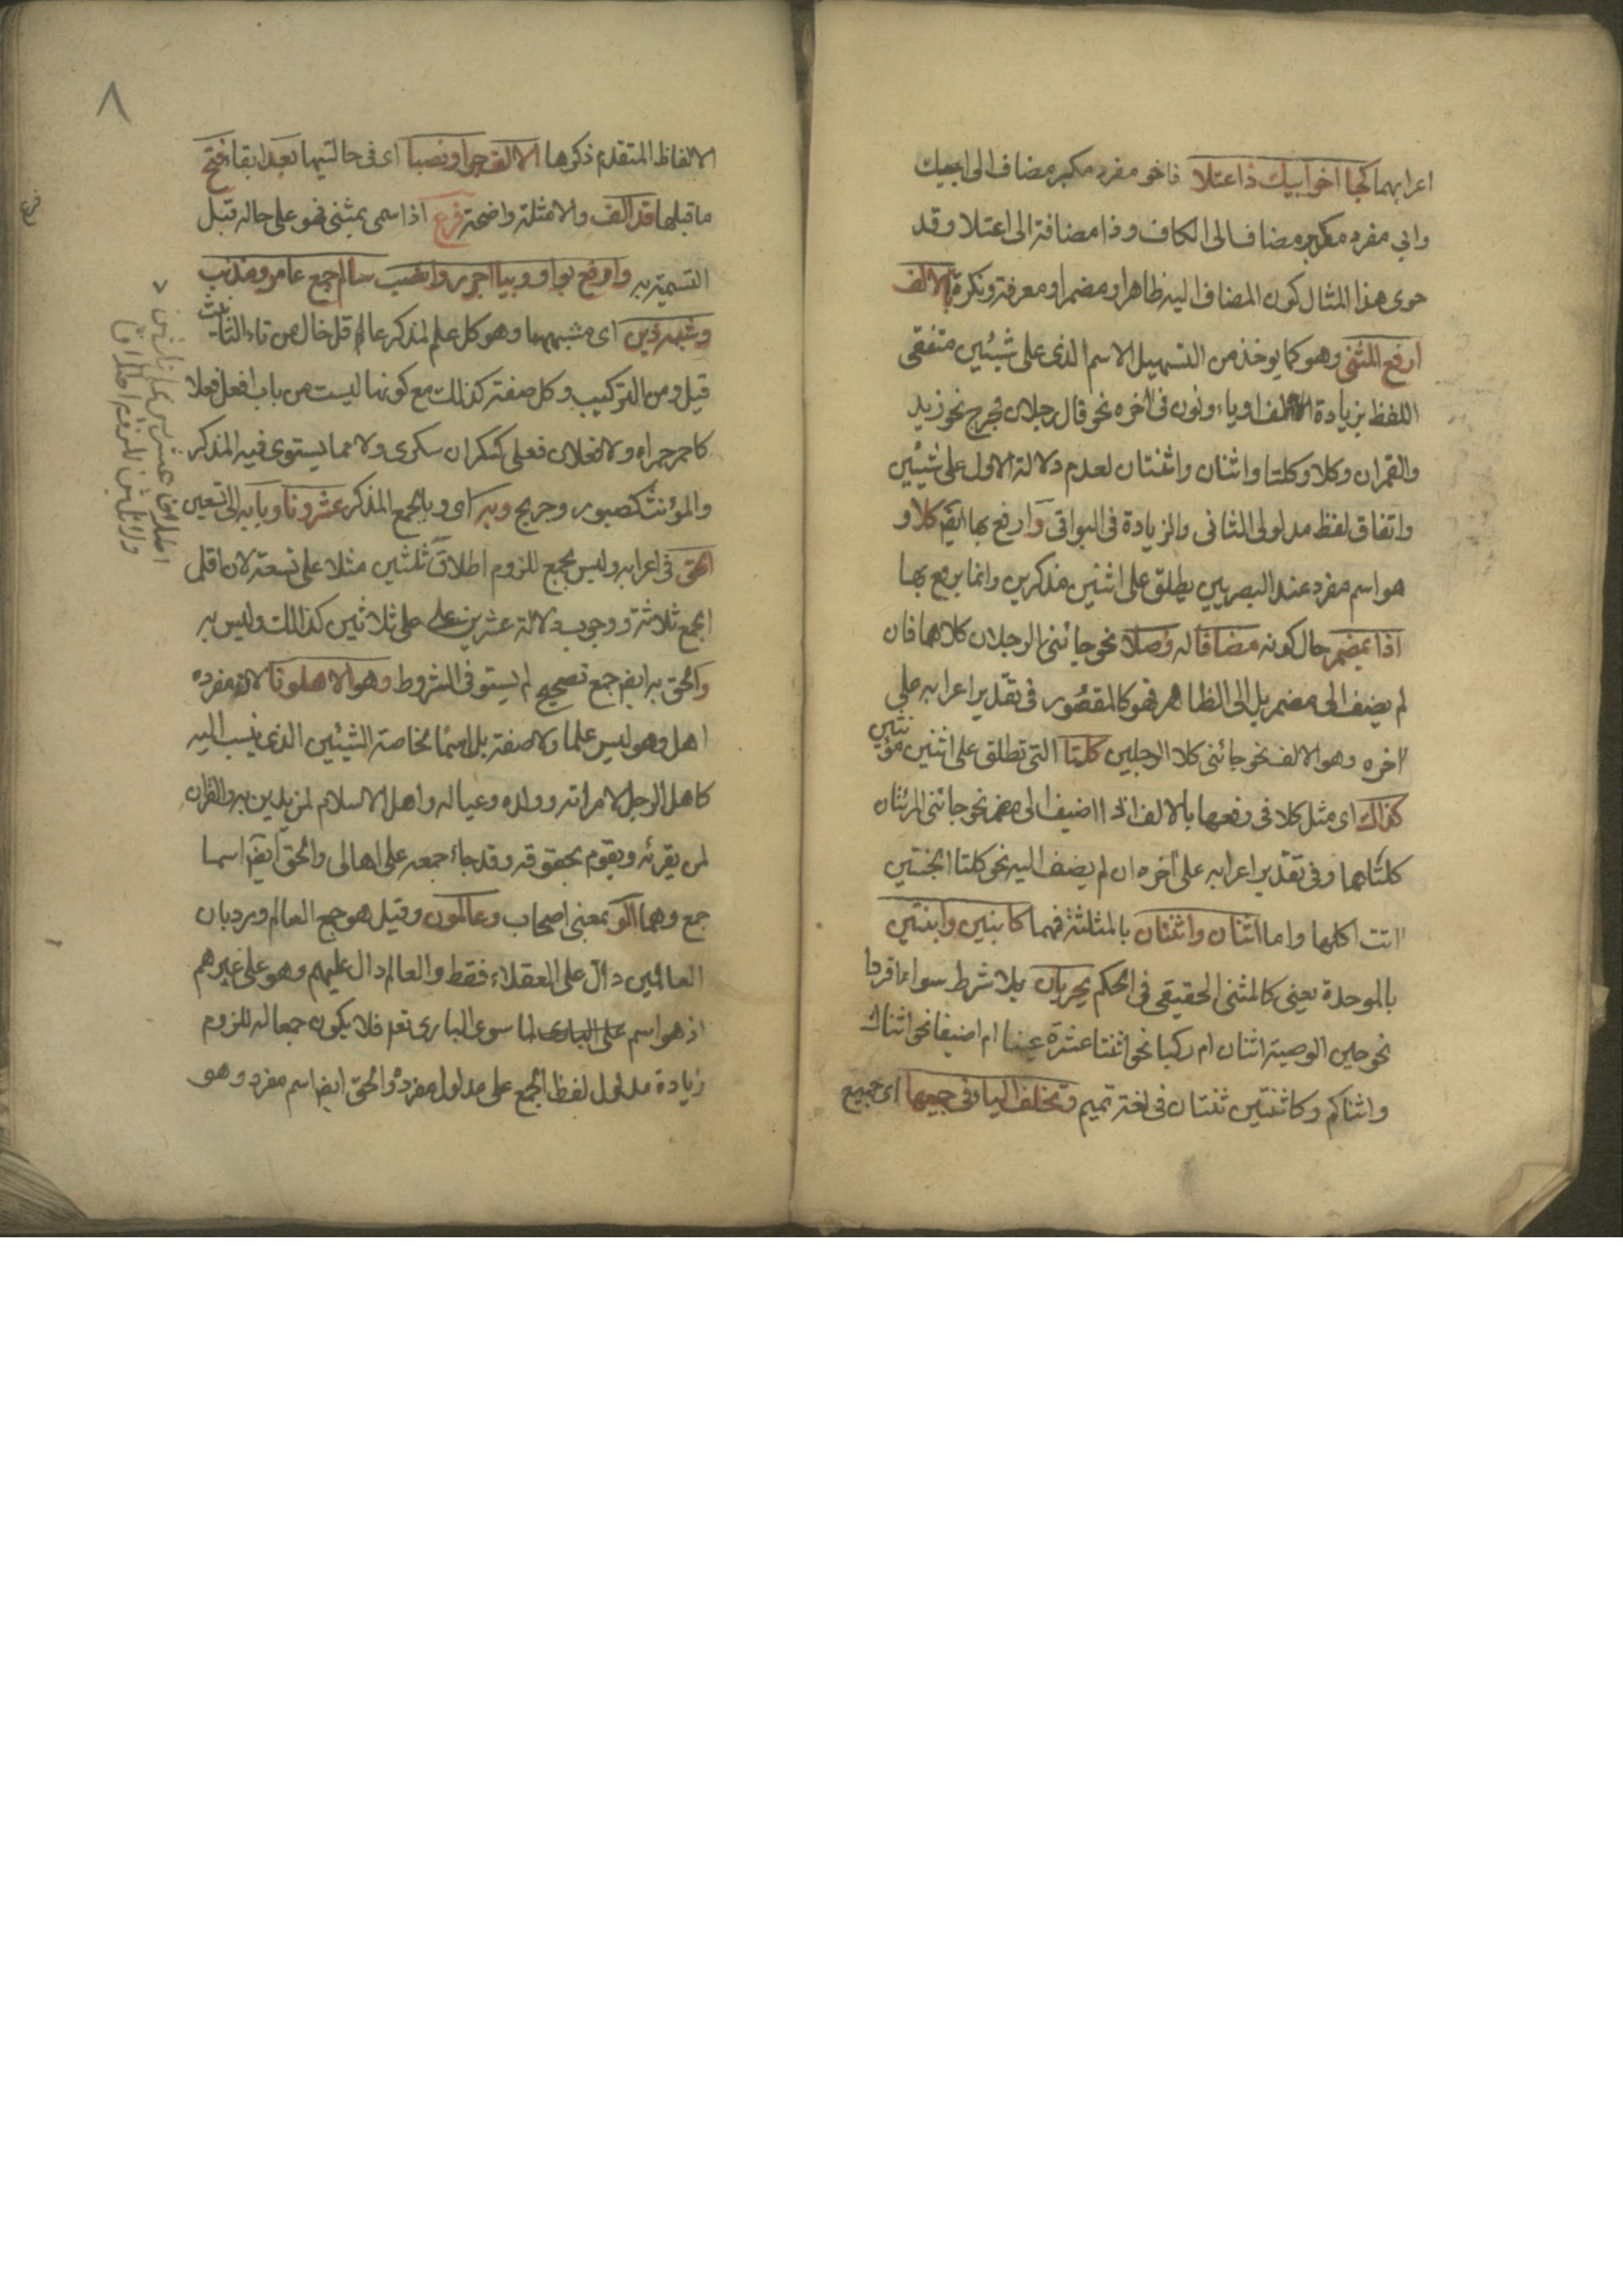 اعرابهما كجا اخوابيك ذا اعتلا فاخو مفرد مكبر مضاف الى ابيك
وابي مفرد مكبر مضاف الى الكاف وذا مضافة الى اعتلا وقد
حوى هذا المثال كون المضاف اليه ظاهرا ومضمرا ومعرفة ونكرة بالالف
ارفع المثنى وهو كما يوخذ من التسهيل الاسم الدال على شيئين متفقى
اللفظ بزيادة الف او ياء ونون فى آخره نحو قال رجلان فخرج نحو زيد
والقمران وكلا وكلتا واثنان واثنتان لعدم دلالة الاول على شيئين
واتفاق لفظ مدلولى الثانى والزيادة فى البواقى وارفع بها ايضا كلا و
هو اسم مفرد عند البصريين يطلق على اثنين مذكرين وانما يرفع بها
اذا بمضمر حال كونه مضافا له وصلا نحو جائنى الرجلان كلاهما فان
لم يضف الى مضمر بل الى الظاهر فهو كالمقصور فى تقدير اعرابه على
آخره وهو الالف نحو جائنى كلا الرجلين كلتا التى تطلق على اثنين مؤنثين
كذاك اى مثل كلا فى رفعها بالالف اذا اضيف الى مضمر نحو جائنى المرئتان
كلتاهما وفى تقدير اعرابه على آخره ان لم يضف اليه نحو كلتا الجنتين
اتت اكلها واما اثنان واثنتان بالمثلثة فهما كابنين وابنتين
بالموحدة يعنى كالمثنى الحقيقى فى الحكم يجريان بلا شرط سواء افردا
نحو حين الوصية اثنان ام ركبا نحو اثنتا عشرة عينا ام اضيفا نحو اثناك
واثناكم وكاثنتين ثنتان فى لغة تميم وتخلف اليا فى جميعها اى جميع
٨
الالفاظ المتقدم ذكرها الالف جرا ونصبا اى فى حالتيهما بعد ابقاء فتح
ما قبلها قد الف والامثلة واضحة فرع اذا سمى بمثنى فهو على حاله قبل
فرع
التسمية به وارفع بواو وبيا اجرر وانصب سالم جمع عامر ومذنب
وشبه ذين اى مشبههما وهو كل علم لمذكر عاقل خال من تاء التانيث
قيل ومن التركيب وكل صفة كذلك مع كونها ليست من باب افعل فعلا
كاحمر حمراء ولا فعلان فعلى كسكران سكرى ولا مما يستوى فيه المذكر
والمؤنث كصبور وجريح وبه اى وبالجمع المذكر عشرونا وبابه الى التسعين
الحق فى اعرابه وليس بجمع للزوم اطلاق ثلثين مثلا على تسعة لان اقل
الجمع ثلاثة ووجوب دلالة عشرين على ثلاثين كذلك وليس به
والحق به ايضا جمع تصحيح لم يستوف الشروط وهو الاهلونا لان مفرده
اهل وهو ليس علما ولا صفة بل اسما لخاصة الشيئين الذى ينسب اليه
كاهل الرجل لامراته وولده وعياله واهل الاسلام لمن يدين به والقران
لمن يقرئه ويقوم بحقوقه وقد جاء جمعه على اهالى والحق ايضا اسما
جمع وهما الو بمعنى اصحاب وعالمون وقيل هو جمع العالم ورد بان
العالمين دال على العقلاء فقط والعالم دال عليهم وهو على غيرهم
اذ هو اسم على البارى لما سوى البارى تعم فلا يكون جمعا له للزوم
زيادة مدلول لفظ الجمع على مدلول مفرده والحق ايضا اسم مفرد وهو